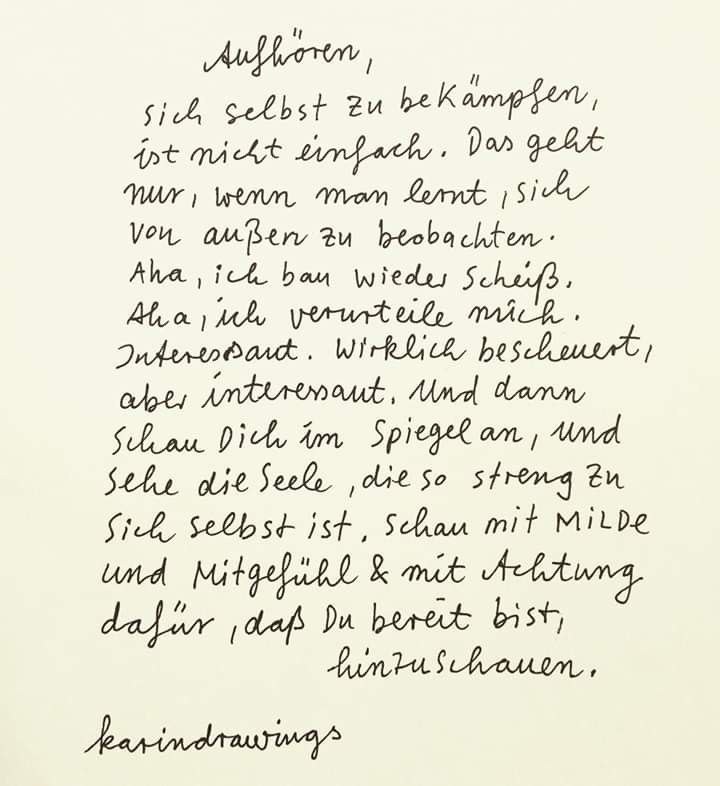 Aufhören,
sich selbst zu bekämpfen,
ist nicht einfach. Das geht
nur, wenn man lernt, sich
von außen zu beobachten.
Aha, ich bau wieder Scheiß.
Aha, ich verurteile mich.
Interessant. Wirklich bescheuert,
aber interessant. Und dann
schau Dich im Spiegel an, und
sehe die Seele, die so streng zu
sich selbst ist. Schau mit MiLDe
und Mitgefühl & mit Achtung
dafür, daß Du bereit bist,
hinzuschauen.
karindrawings